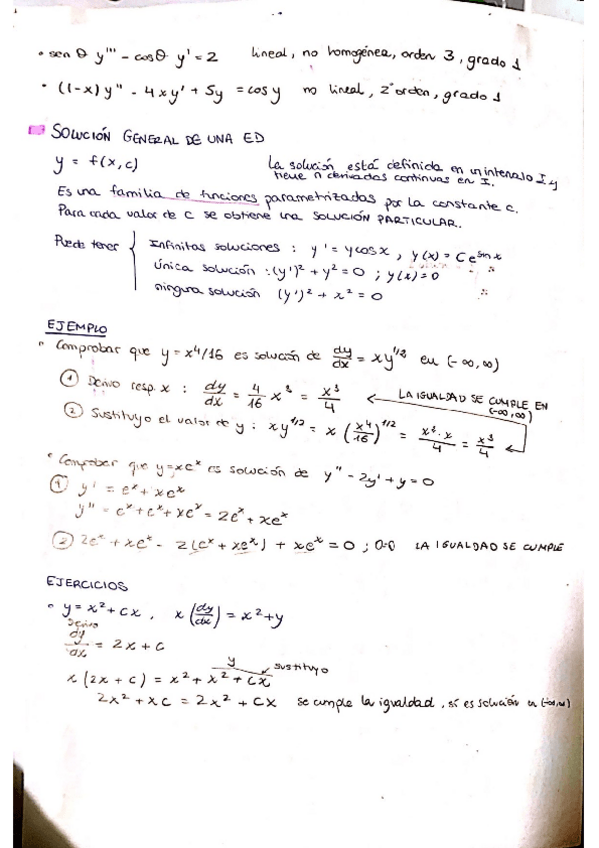 • sen θ y''' - cosθ y' = 2 lineal, no homogénea, orden 3, grado 1
• (1-x) y'' - 4xy' + 5y = cos y no lineal, 2º orden, grado 1
SOLUCIÓN GENERAL DE UNA ED
y = f(x,c) La solución está definida en un intervalo I y tiene n derivadas continuas en I.
Es una familia de funciones parametrizadas por la constante c.
Para cada valor de c se obtiene una SOLUCIÓN PARTICULAR.
Puede tener { Infinitas soluciones : y' = ycosx , y(x) = C e^{sin x}
única solución : (y')² + y² = 0 ; y(x) = 0
ninguna solución (y')² + x² = 0
EJEMPLO
• Comprobar que y = x⁴/16 es solución de dy/dx = xy^{1/2} en (-∞,∞)
① Derivo resp. x : dy/dx = 4/16 x³ = x³/4 LA IGUALDAD SE CUMPLE EN (-∞,∞)
② Sustituyo el valor de y : xy^{1/2} = x (x⁴/16)^{1/2} = x²·x/4 = x³/4
• Comprobar que y=xeˣ es solución de y'' - 2y' + y = 0
① y' = eˣ + xeˣ
y'' = eˣ + eˣ + xeˣ = 2eˣ + xeˣ
② 2eˣ + xeˣ - 2(eˣ + xeˣ) + xeˣ = 0 ; 0=0 LA IGUALDAD SE CUMPLE
EJERCICIOS
• y = x² + cx , x (dy/dx) = x² + y
Derivo
dy/dx = 2x + c
x (2x + c) = x² + x² + cx y sustituyo
2x² + xc = 2x² + cx se cumple la igualdad, sí es solución en (-∞,∞)